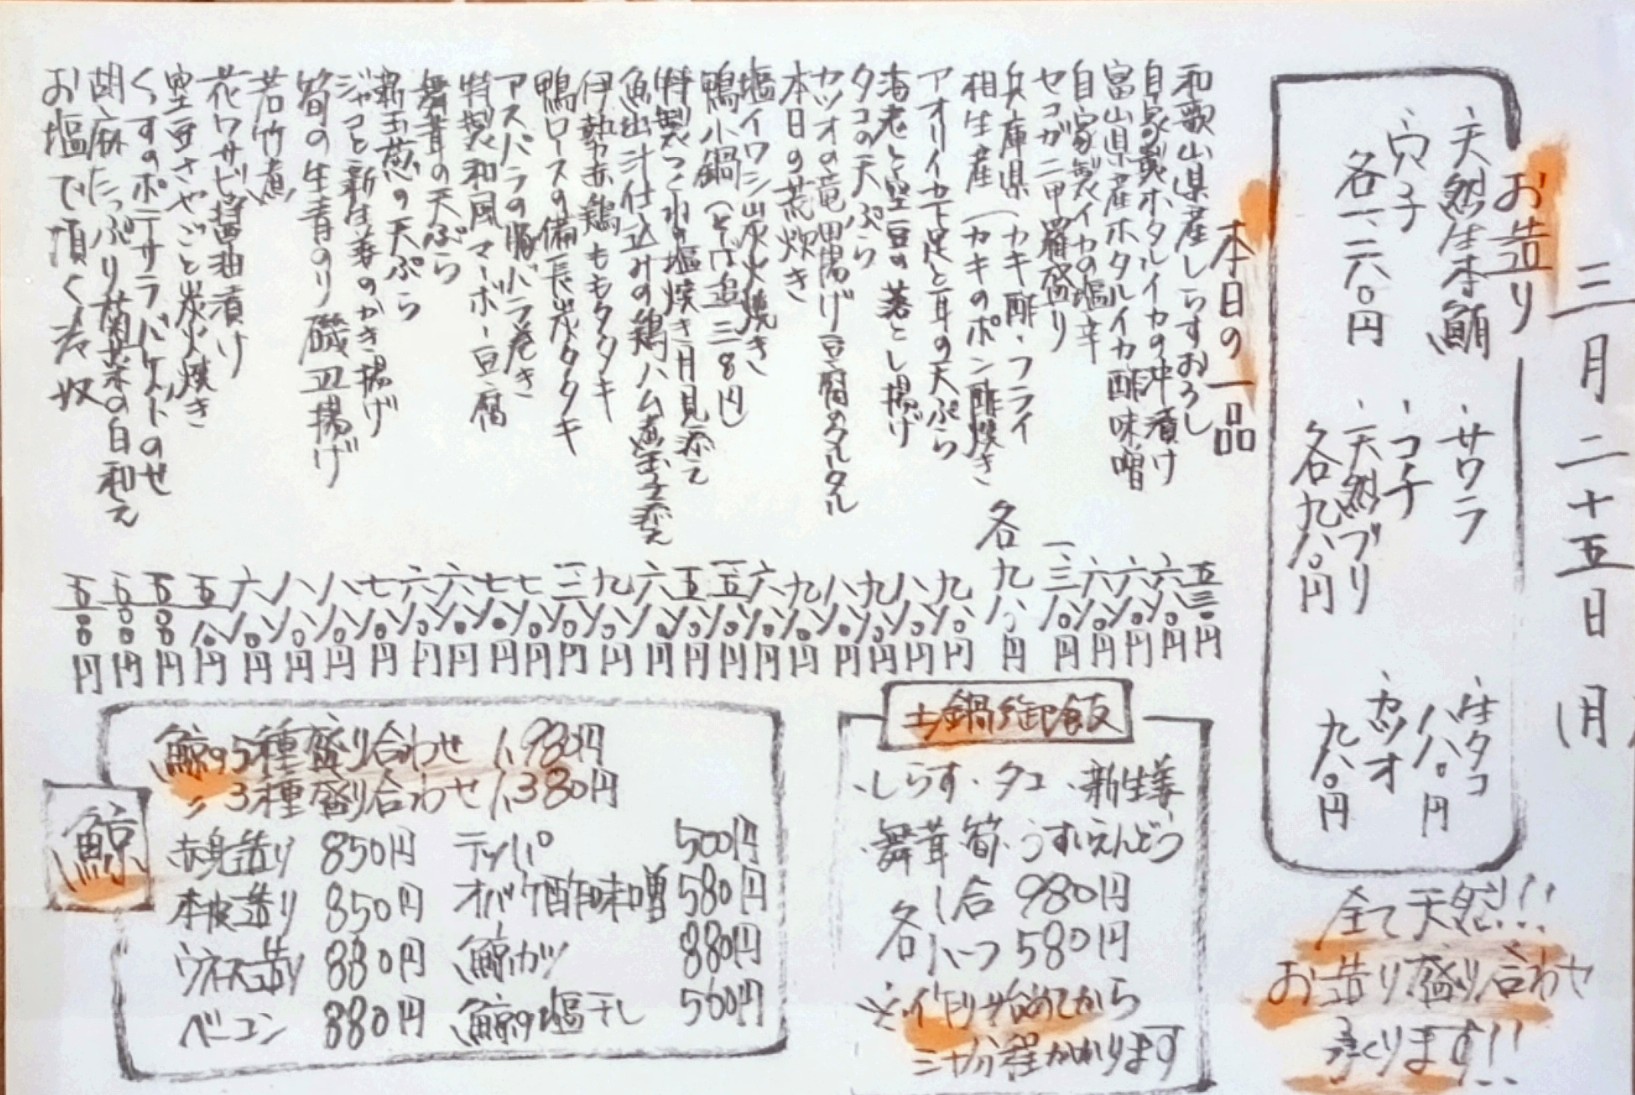 三月二十五日(月)
お造り
・天然生本鮪
・穴子
各一二八〇円
・サワラ
・コチ
・天然ブリ
各九八〇円
・生タコ
八八〇円
・カツオ
九八〇円
全て天然!!
お造り盛り合わせ
承くります!!
本日の一品
和歌山県産しらすおろし 五三〇円
自家製ホタルイカの沖漬け 六八〇円
富山県産ホタルイカ酢味噌 六八〇円
自家製イカの塩辛 六八〇円
セコガニ甲羅盛り 一三八〇円
兵庫県(カキ酢・フライ
相生産(カキのポン酢焼き 各九八〇円
アオリイカで足と耳の天ぷら 九八〇円
海老と空豆の落とし揚げ 八八〇円
タコの天ぷら 九八〇円
カツオの竜田揚げ豆腐のタルタル 八八〇円
本日の荒炊き 九八〇円
塩イワシ炭火焼き 六八〇円
鴨小鍋(そば追三八〇円) 一五八〇円
特製つくねの塩焼き月見添え 五八〇円
魚出汁仕込みの鶏ハム煮玉子添え 六八〇円
伊勢赤鶏ももタタキ 九八〇円
鴨ロースの備長炭タタキ 一三八〇円
アスパラの豚バラ巻き 七八〇円
特製和風マーボー豆腐 七八〇円
舞茸の天ぷら 六八〇円
新玉葱の天ぷら 六八〇円
ジャコと新生姜のかき揚げ 七八〇円
筍の生青のり磯辺揚げ 八八〇円
若竹煮 八八〇円
花ワサビ醤油漬け 六八〇円
空豆さやごと炭火焼き 五八〇円
くんすのポテサラバケットのせ 五八〇円
胡麻たっぷり菊菜の白和え 五〇〇円
お塩で頂く冷奴 五〇〇円
土鍋御飯
・しらす・タコ・新生姜
・舞茸・筍・うすいえんどう
各 1合 980円
ハーフ 580円
※作り始めてから
三十分程かかります
鯨
鯨の5種盛り合わせ 1,980円
〃 3種盛り合わせ 1,380円
赤身造り 850円
本皮造り 850円
ウネス造り 880円
ベーコン 880円
テッパ 500円
オバケ酢味噌 580円
鯨カツ 880円
鯨の塩干し 500円